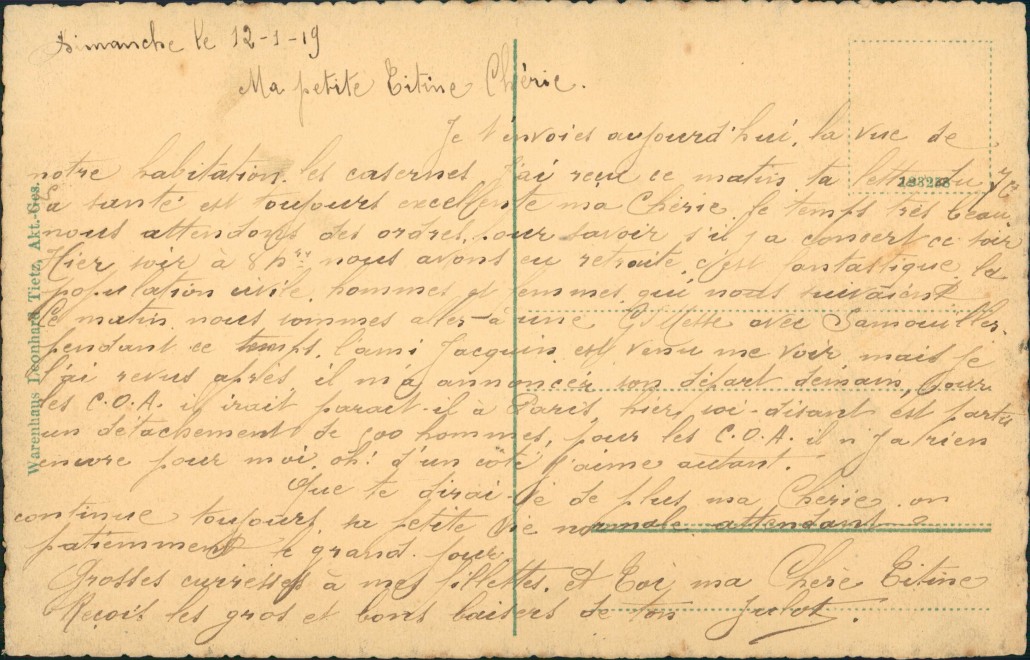 Dimanche le 12-1-19
Ma petite Titine Chérie.
Je t'envoies aujourd'hui, la vue de
notre habitation. les casernes J'ai reçu ce matin ta lettre du 7ct
ta santé est toujours excellente ma Chérie. le temps très beau,
nous attendons des ordres, pour savoir s'il y a concert ce soir
Hier soir à 8 hres nous avons eu retraite, c'est fantastique la
population civile, hommes et femmes qui nous suivaient
Ce matin nous sommes allés à une avec Samouiller.
pendant ce temps, l'ami Jacquin est venu me voir, mais je
l'ai revus après, il m'a annoncer son départ demain, pour
les C.O.A. il irait parait-il à Paris, hier soi-disant est partis
un détachement de 500 hommes, pour les C.O.A. il n'y a rien
encore pour moi, oh! d'un côté j'aime autant.
Que te dirai-je de plus ma Chérie, on
continue toujours, sa petite vie normale attendant
patiemment le grand jour.
Grosses caresses à mes fillettes. et Toi ma Chère Titine
Reçois les gros et bons baisers de ton Julot.
Warenhaus Leonhard Tietz, Akt.-Ges.